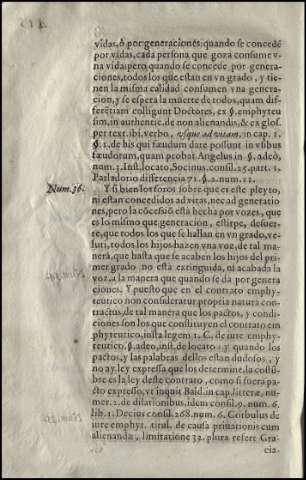 vidas, ò por generaciones: quando se concede
por vidas, cada persona que goza consume v-
na vida: pero quando se concede por genera-
ciones, todos los que estan en vn grado, y tie-
nen la misma calidad consumen vna genera-
cion, y se espera la muerte de todos, quam dif-
ferẽtiam colligunt Doctores, ex §. emphyteu-
sim, in authentic. de non alienandis, & ex glos.
per text. ibi, verbo, vsque ad vitam, in cap. 1.
§. 1. de his qui fæudum dare possunt in vsibus
fæudorum, quam probat Angelus in §. adeò,
num. 3. Inst. locato, Socinus, consil. 25. part. 1.
Parladorio differencia 71. §. 2. num. 12.
Num. 36.
Y si bien los foros sobre que es este pleyto,
ni estan concedidos ad vitas, nec ad generatio-
nes, pero la cõcessiõ està hecha por vozes, que
es lo mismo que generacion, estirpe, de suer-
te, que todos los que se hallan en vn grado, ve-
luti, todos los hijos hazen vna voz, de tal ma-
nera, que hasta que se acaben los hijos del pri-
mer grado no està extinguida, ni acabada la
voz, a la manera que quando se da por genera
ciones. Y puesto que en el contrato emphy-
teutico non consideratur propria natura con-
tractus, de tal manera que los pactos, y condi-
ciones son los que constituyen el contrato em
phyteutico, iuxta legem 1. C. de iure emphy-
teutico, §. adeo, inst. de locato: y quando los
pactos, y las palabras dellos estàn dudosos, y
no ay ley expressa que los determine, la costũ-
bre es la ley deste contrato, como si fuera pa-
cto expresso, vt inquit Bald. in cap. litteræ, nu-
mer. 2. de dilationibus, idem consil. 9. num. 6.
lib. 1. Decius consil. 268. num. 6. Corbulus de
iure emphyt. titul. de causa priuationis cum
alienanda, limitatione 32. plura refert Gra-
cia.